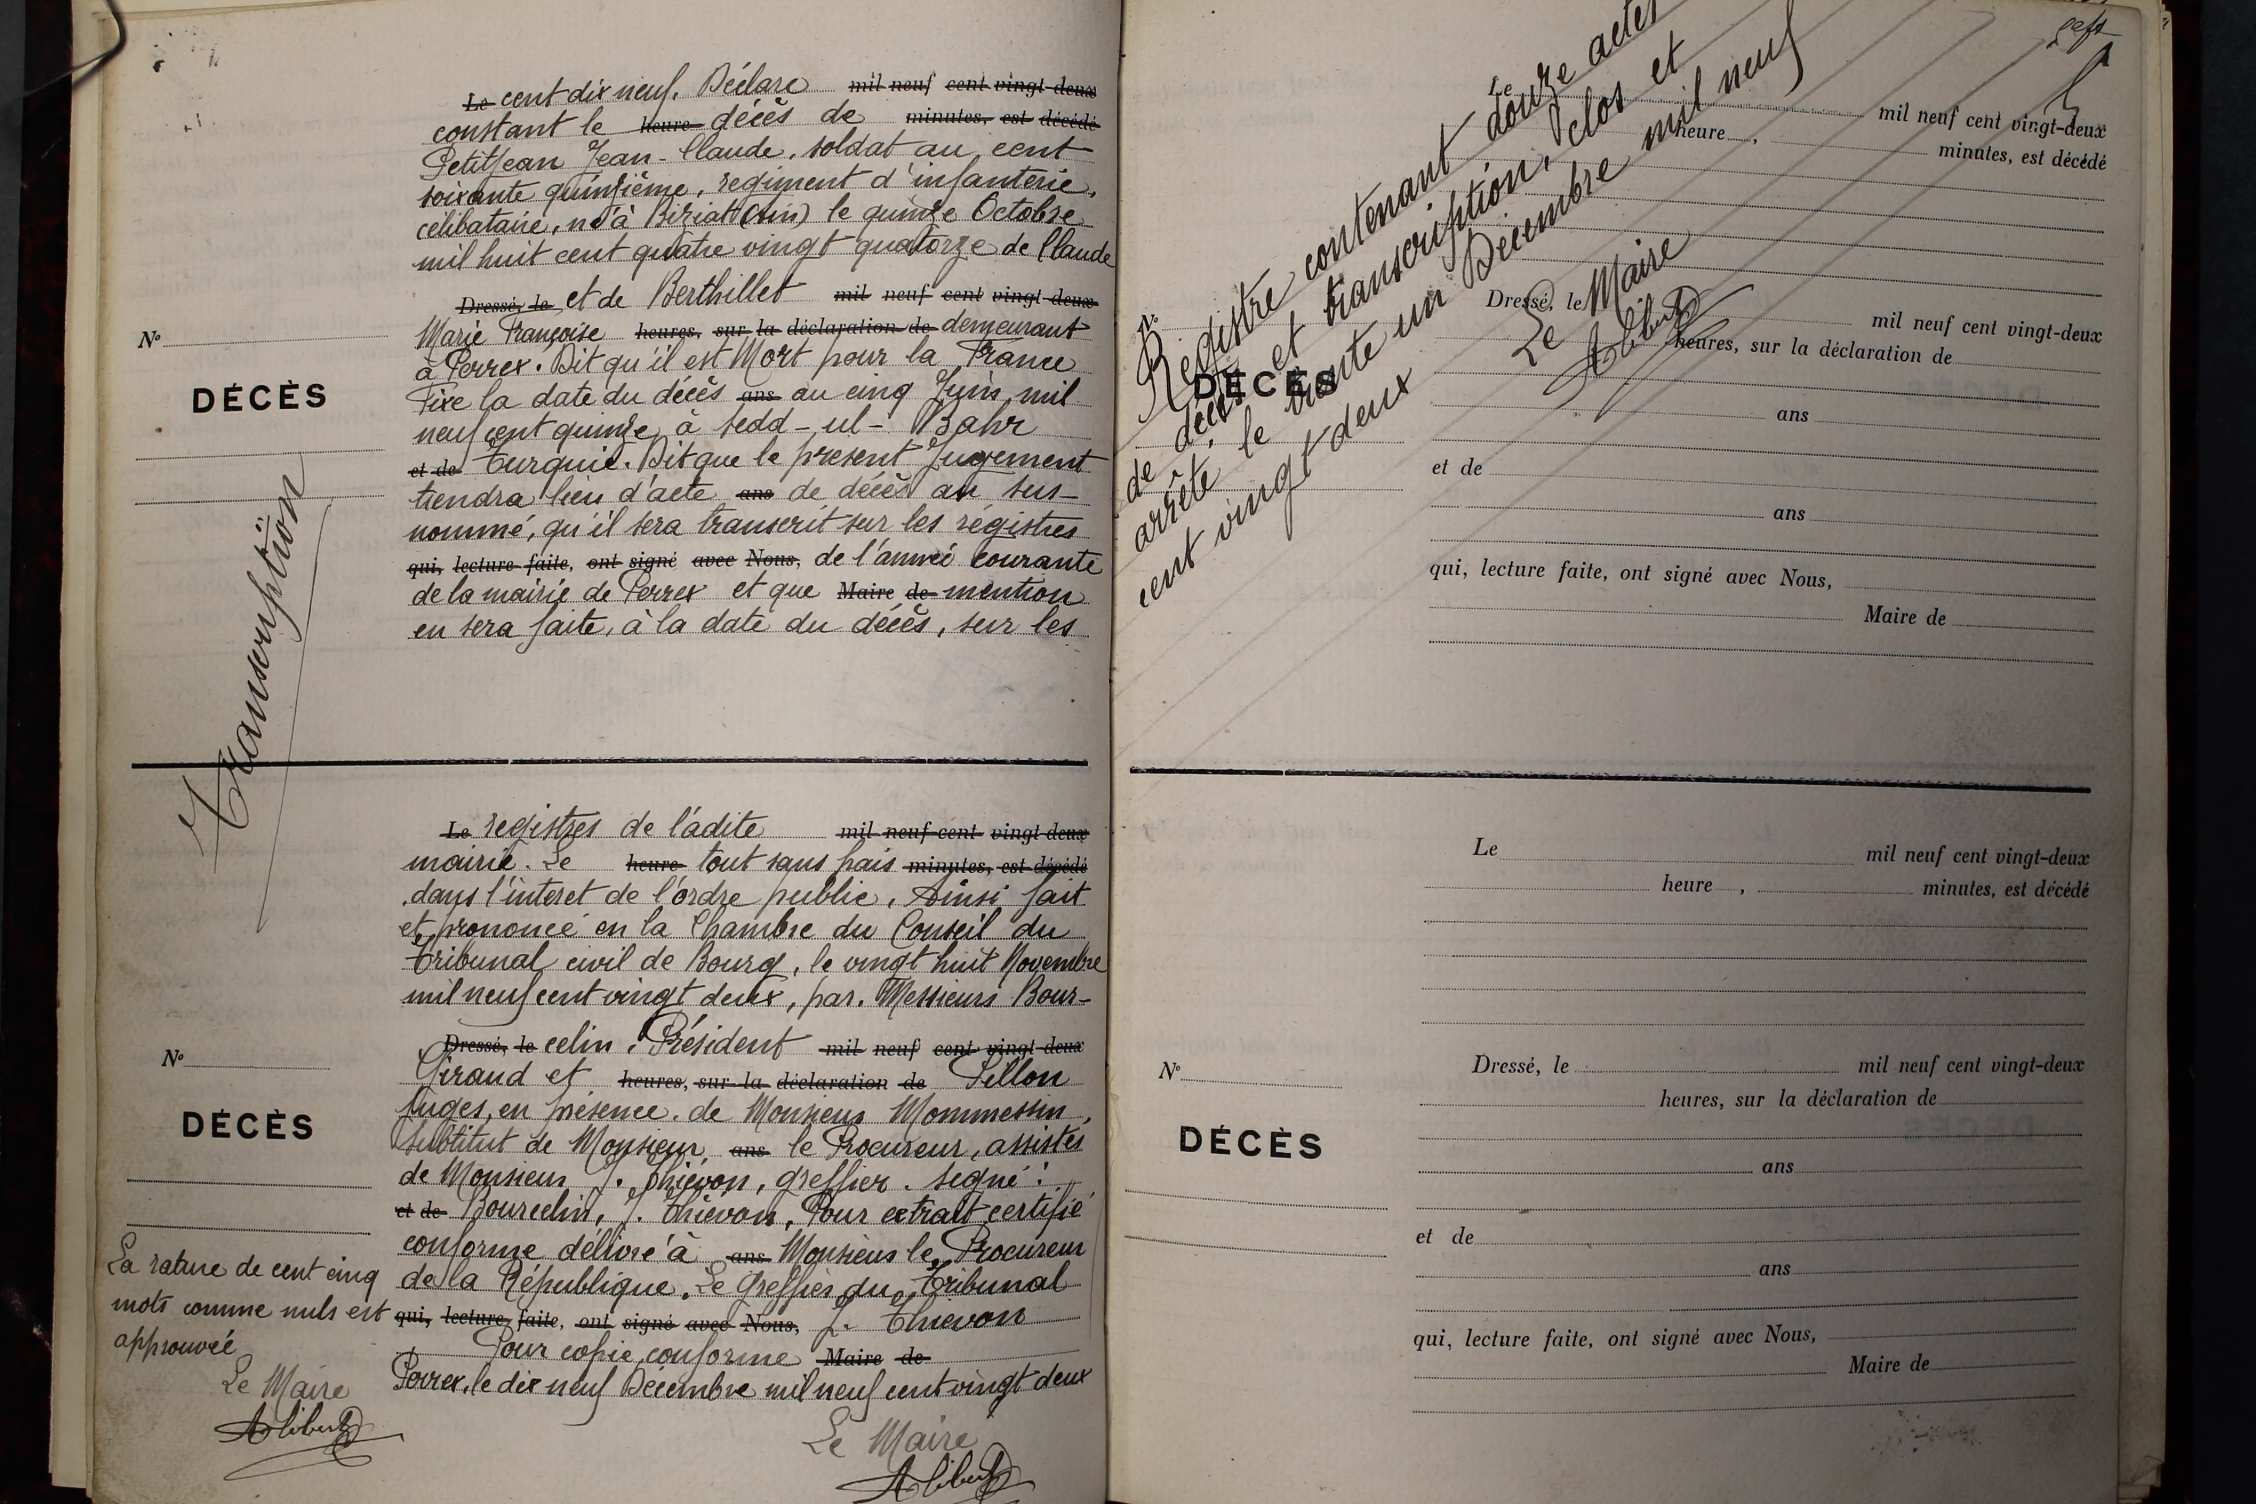 Le cent dix neuf. Déclare mil neuf cent vingt-deux
constant le heure décès de minutes, est décédé
Petitjean Jean-Claude, soldat au cent
soixante quinzième, regiment d'infanterie,
célibataire, né à Biziat (Ain) le quinze Octobre
mil huit cent quatre vingt quatorze de Claude
Dressé, le et de Berthillet mil neuf cent vingt-deux
Marie Françoise heures, sur la déclaration de demeurant
à Perrex. Dit qu'il est Mort pour la France
Fixe la date du décès ans au cinq Juin mil
neuf cent quinze à Sedd-ul-Bahr
et de Turquie. Dit que le present Jugement
tiendra lieu d'acte ans de décès au sus-
nommé, qu'il sera transcrit sur les régistres
qui, lecture faite, ont signé avec Nous, de l'année courante
de la mairie de Perrex et que Maire de mention
en sera faite, à la date du décès, sur les
No
DÉCÈS
Transcription
Le registres de ladite mil neuf cent vingt-deux
mairie. Le heure tout sans frais minutes, est décédé
dans l'interet de l'ordre public. Ainsi fait
et prononcé en la Chambre du Conseil du
Tribunal civil de Bourg, le vingt huit Novembre
mil neuf cent vingt deux, par Messieurs Bour-
Dressé, le celin, Président mil neuf cent vingt-deux
Giraud et heures, sur la déclaration de Pillon
Juges, en présence de Monsieur Mommessin,
Substitut de Monsieur ans le Procureur, assistés
de Monsieur J. Thiévon, greffier. Signé:
et de Bourcelin, J. Thiévon, Pour extrait certifié
conforme délivré à ans Monsieur le Procureur
de la République. Le Greffier du Tribunal
qui, lecture faite, ont signé avec Nous, J. Thievon
Pour copie conforme Maire de
Perrex, le dix neuf Décembre mil neuf cent vingt deux
Le Maire
Alibert
No
DÉCÈS
La rature de cent cinq
mots comme nuls est
approuvée
Le Maire
Alibert
Registre contenant douze actes
de décès et transcription, clos et
arrêté le trente un Décembre mil neuf
cent vingt deux
Le Maire
Alibert
Le mil neuf cent vingt-deux
heure , minutes, est décédé
Dressé, le mil neuf cent vingt-deux
heures, sur la déclaration de
No
DÉCÈS
ans
et de
ans
qui, lecture faite, ont signé avec Nous,
Maire de
Le mil neuf cent vingt-deux
heure , minutes, est décédé
Dressé, le mil neuf cent vingt-deux
heures, sur la déclaration de
No
DÉCÈS
ans
et de
ans
qui, lecture faite, ont signé avec Nous,
Maire de